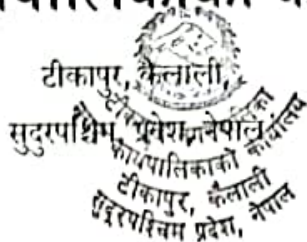 टीकापुर, कैलाली
सुदुरपश्चिम प्रदेश, नेपाल
कार्यपालिकाको कार्यालय
टीकापुर, कैलाली
सुदूरपश्चिम प्रदेश, नेपाल